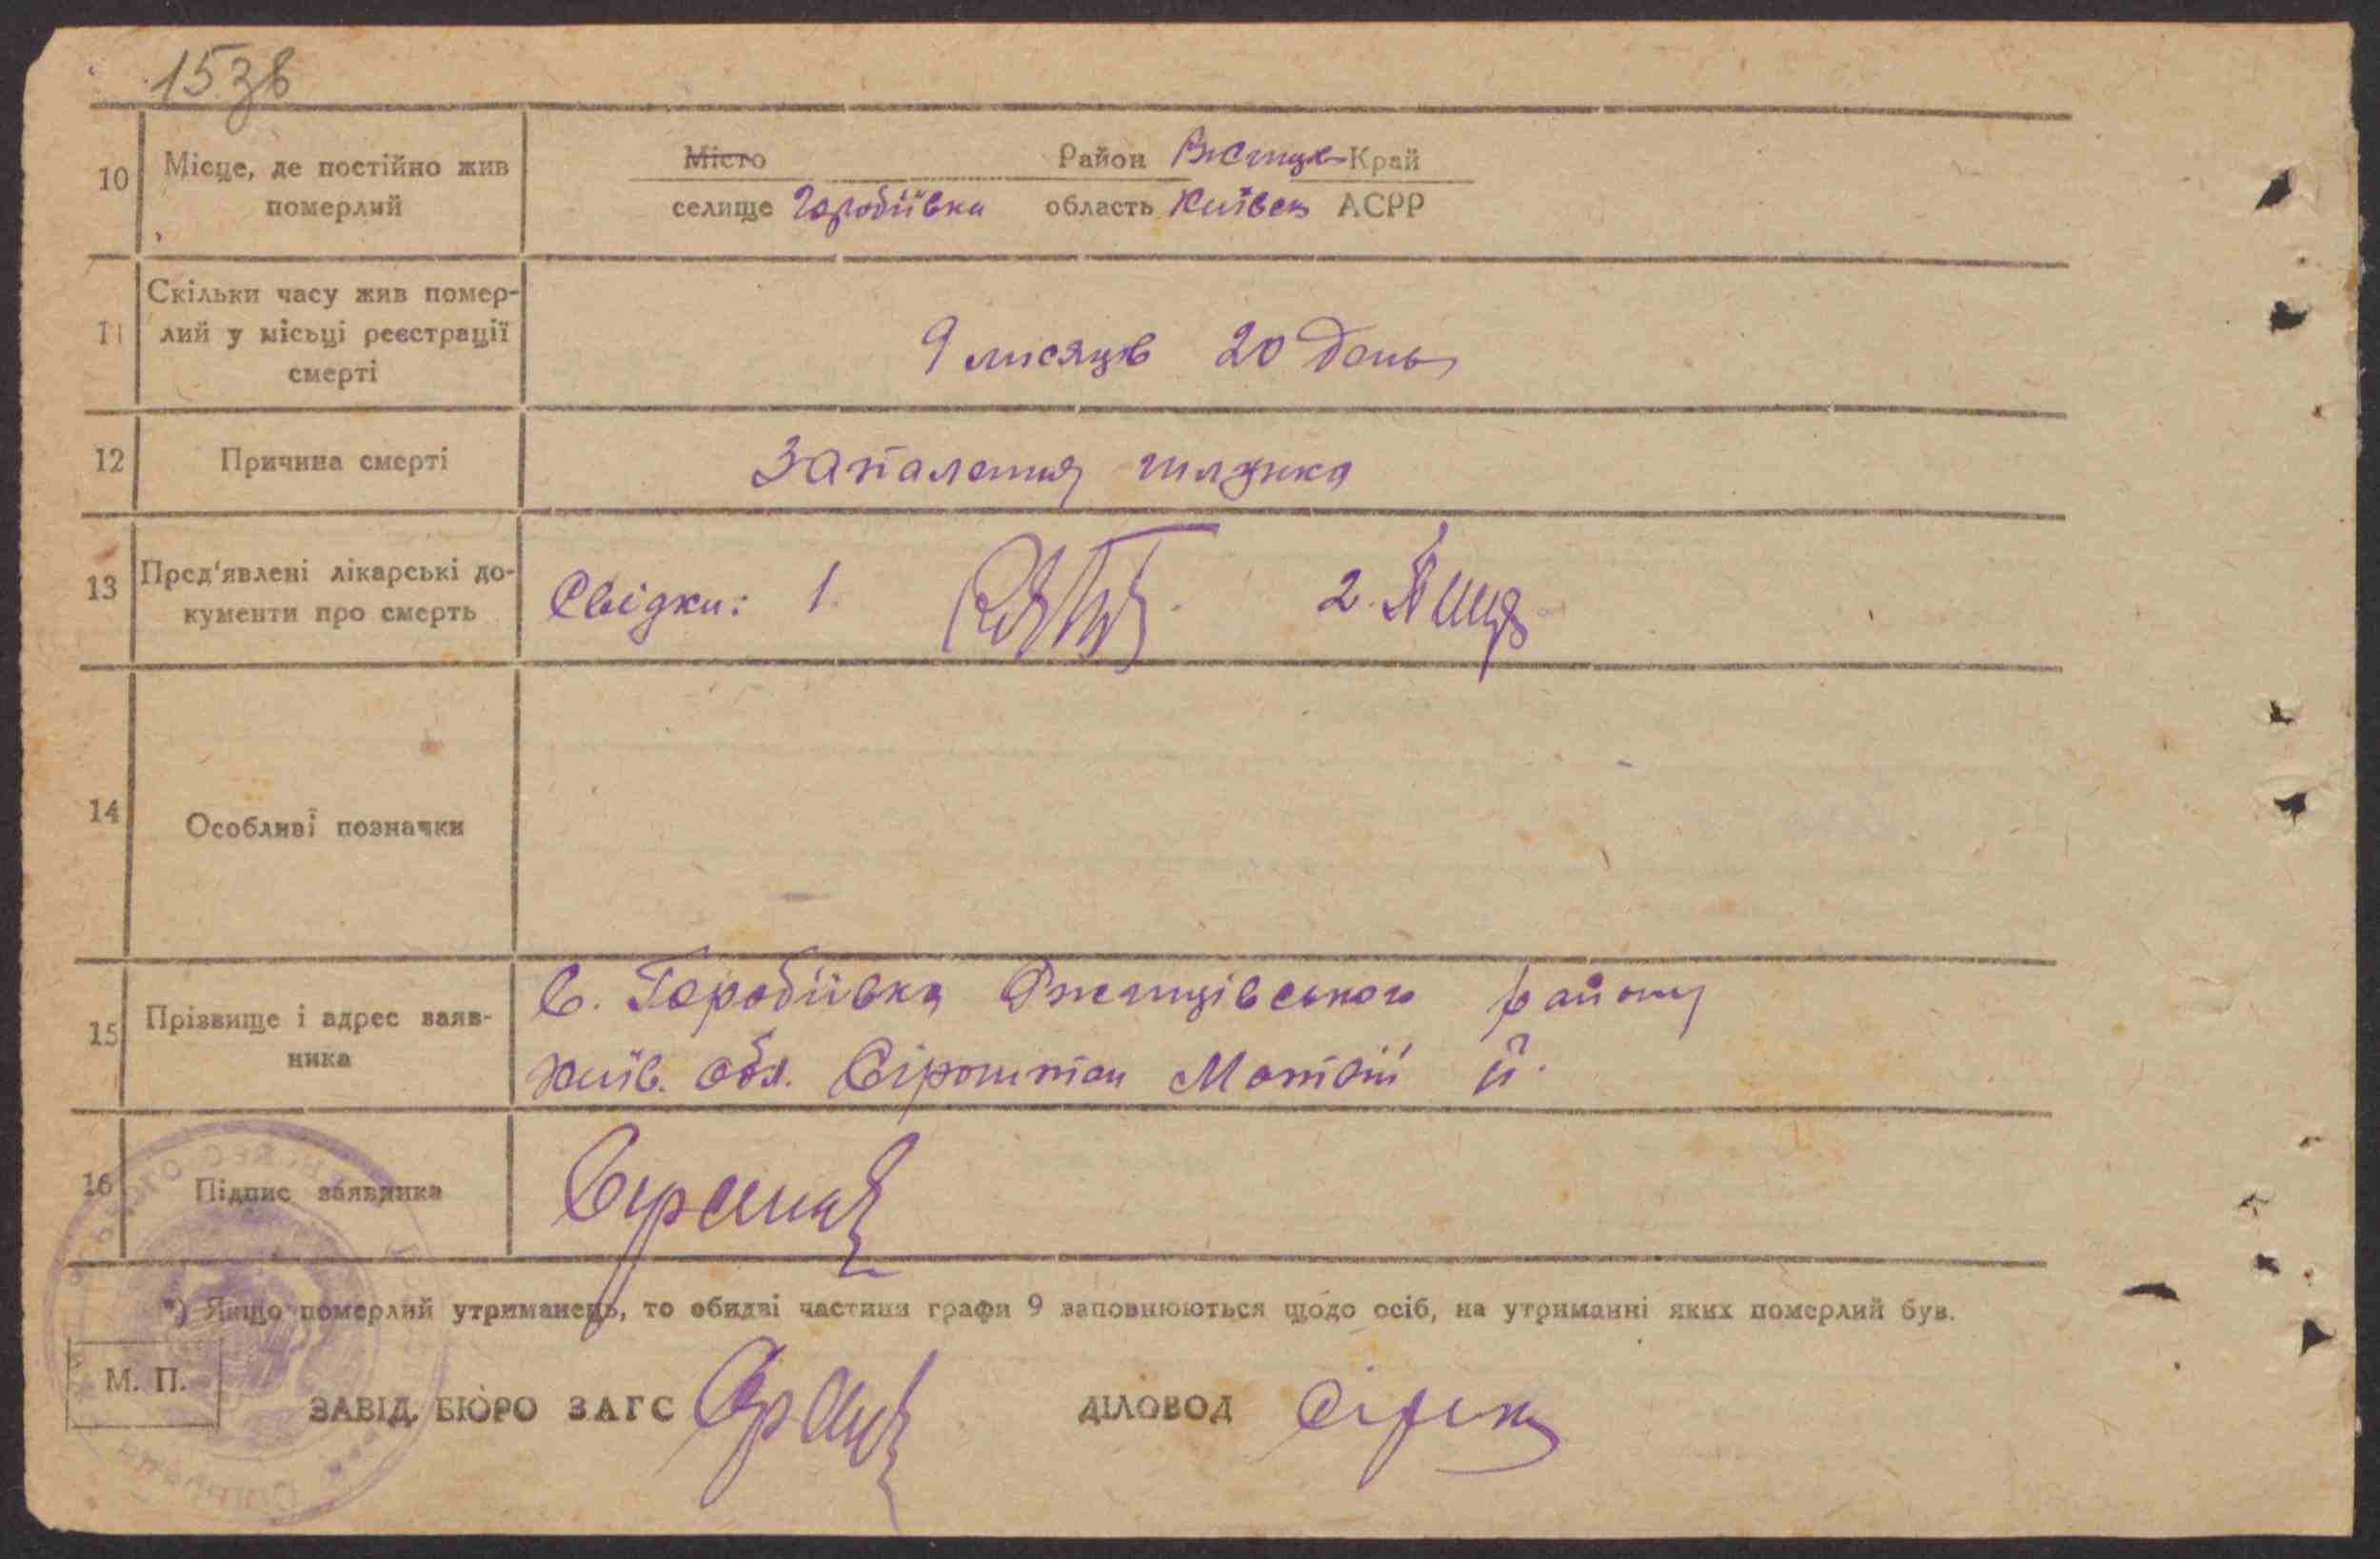 15 зв
10 Місце, де постійно жив
померлий
Місто Район Ржищів Край
селище Горобіївка область Київськ АСРР
11 Скільки часу жив помер-
лий у місьці реєстрації
смерті
9 місяців 20 день
12 Причина смерті
Запалення шлунка
13 Пред'явлені лікарські до-
кументи про смерть
Свідки: 1. 2.
14 Особливі позначки
15 Прізвище і адрес заяв-
ника
С. Горобіївка Ржищівського району
Київ. обл. Сіроштан Мотвій й.
16 Підпис заявника
*) Якщо померлий утриманець, то обидві частини графи 9 заповнюються щодо осіб, на утриманні яких померлий був.
М. П.
ЗАВІД. БЮРО ЗАГС ДІЛОВОД